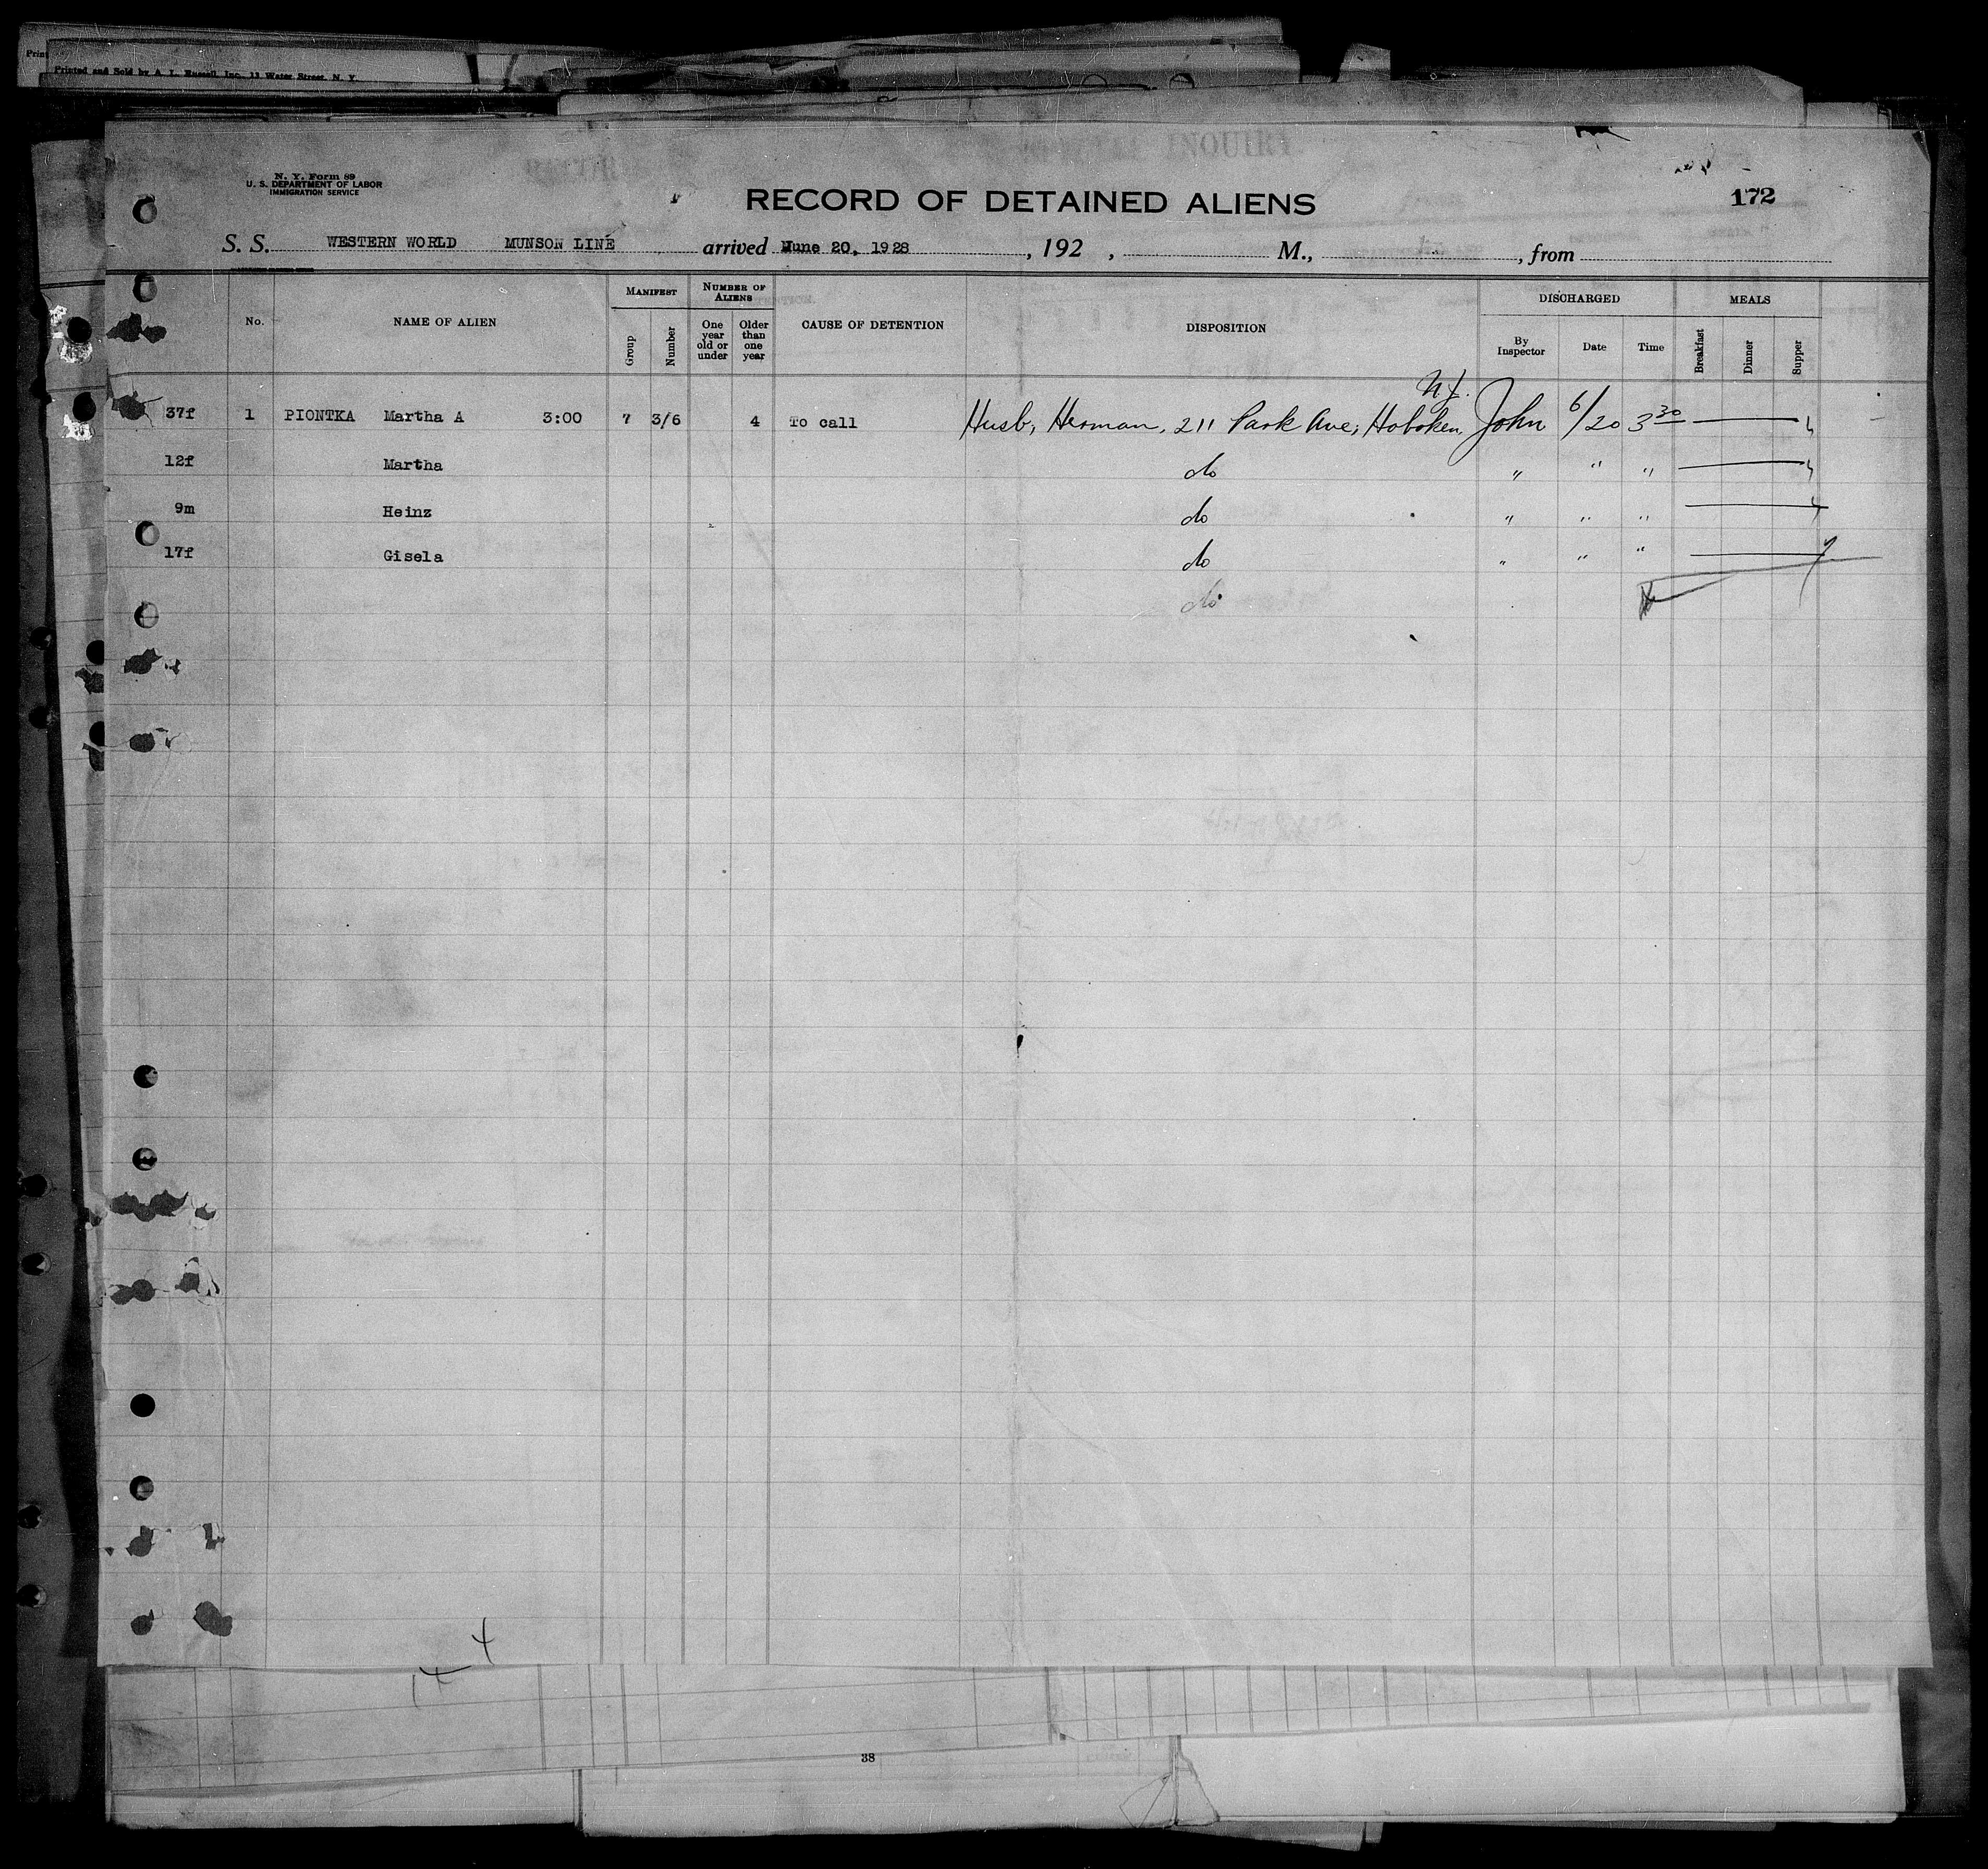 Printed and Sold by A. L. Russell, Inc., 13 Water Street, N. Y.
N. Y. Form 89
U. S. DEPARTMENT OF LABOR
IMMIGRATION SERVICE
RECORD OF DETAINED ALIENS
172
S. S. WESTERN WORLD MUNSON LINE arrived June 20, 1928, 192 , M., , from
No.
NAME OF ALIEN
MANIFEST
Group
Number
NUMBER OF ALIENS
One year old or under
Older than one year
CAUSE OF DETENTION
DISPOSITION
DISCHARGED
By Inspector
Date
Time
MEALS
Breakfast
Dinner
Supper
37f 1 PIONTKA Martha A 3:00 7 3/6 4 To call Husb, Herman, 211 Park Ave, Hoboken, N.J. John 6/20 3 30
12f Martha do " " "
9m Heinz do " " "
17f Gisela do " " "
do
4
14
38